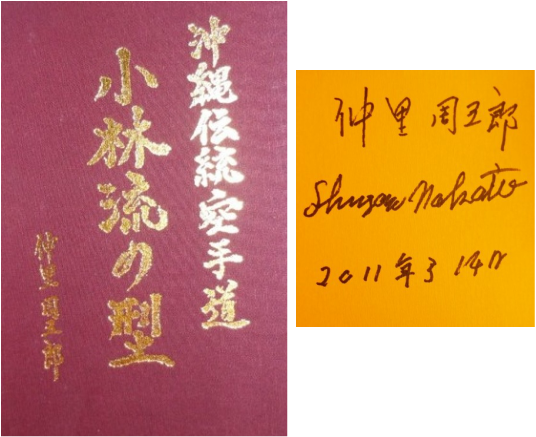 沖縄伝統空手道
小林流の型
仲里周五郎
仲里 周五郎
Shugoro Nakazato
2011年3 14日